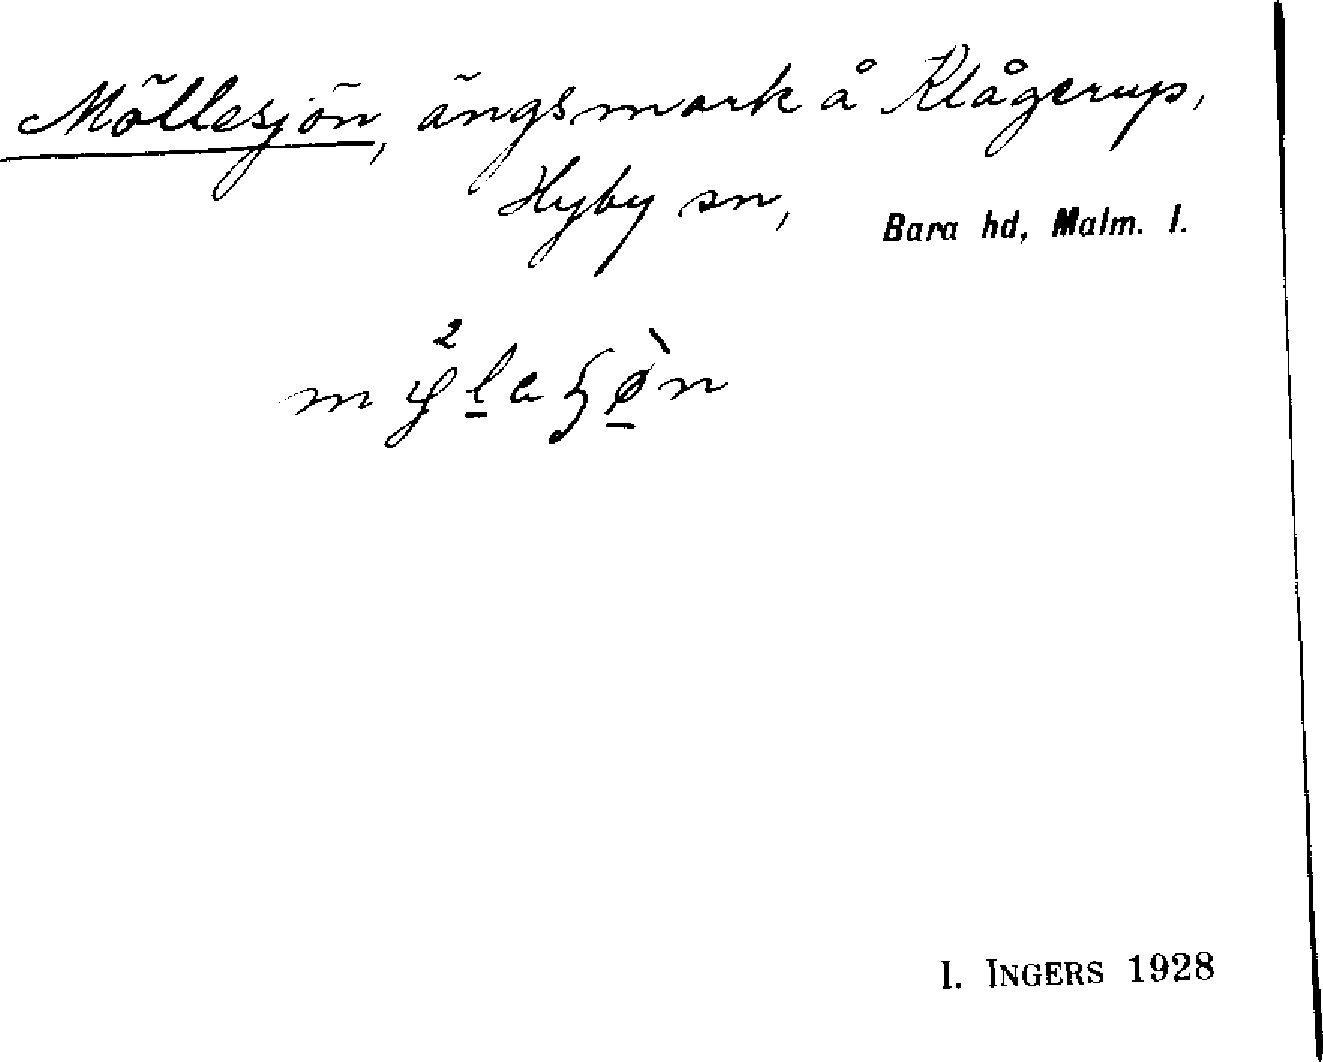 Möllesjön, ängsmark å Klågerup,
Hyby sn, Bara hd, Malm. l.
I. INGERS 1928